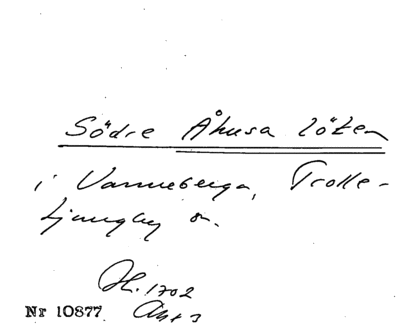 Södre Åhusa löten
i Vanneberga, Trolle-
Ljungby sn.
H. 1702
Akt 3
Nr 10877